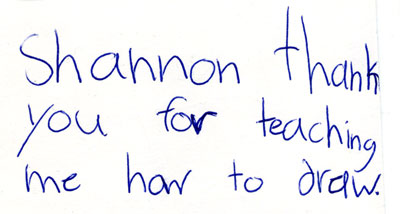 Shannon thank
you for teaching
me how to draw.